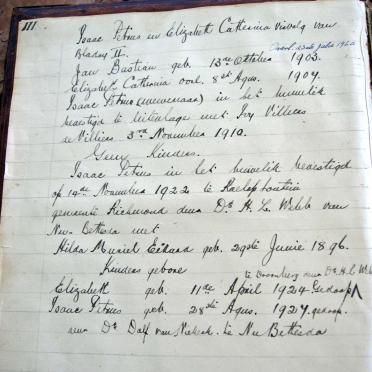 III.
Isaac Petrus en Elizabeth Catherina vervolg van
Bladsy II.
Jan Bastian geb. 13de Oktober 1903.
Elizabeth Catherina oorl. 8ste Aug. 1904.
Isaac Petrus (wewenaar) in het huwelik
bevestigd te Uitenhage met Ivy Villiers
de Villiers 3rd November 1910.
Geen Kinders.
Isaac Petrus in het huwelik bevestigd
op 14de November 1922 te
gemeente Richmond deur Ds H. L. van
Nu Bethesda met
Hilda Muriel geb. 29ste Junie 1896.
Kinders gebore
te Doornberg deur Ds H. L.
Elizabeth geb. 11de April 1924. Gedoop
Isaac Petrus geb. 28ste Aug. 1927. gedoop
deur Ds van Niekerk te Nu Bethesda